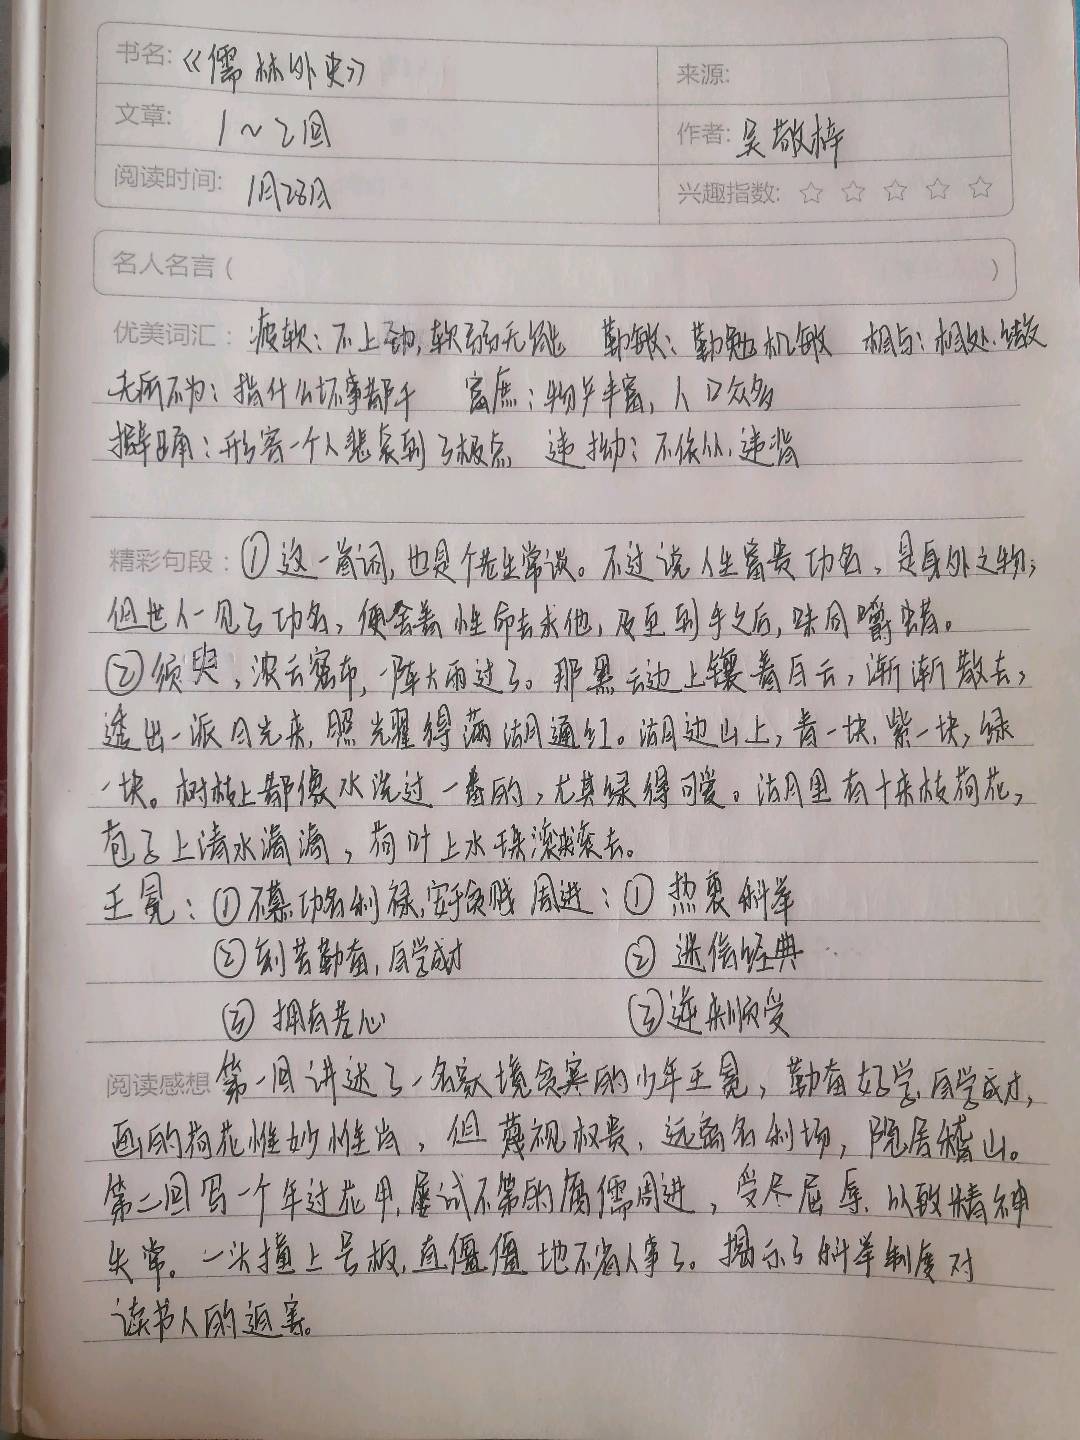 书名:《儒林外史》 来源:
文章: 1～2回 作者: 吴敬梓
阅读时间: 1月28日 兴趣指数: ☆ ☆ ☆ ☆ ☆
名人名言 ( )
优美词汇: 疲软:不上劲,软弱无能 勤敏:勤勉机敏 相与:相处、结交
无所不为:指什么坏事都干 富庶:物产丰富,人口众多
擗踊:形容一个人悲哀到了极点 违拗:不依从,违背
精彩句段: ①这一首词,也是个老生常谈。不过说人生富贵功名,是身外之物;
但世人一见了功名,便舍着性命去求他,及至到手之后,味同嚼蜡。
②须臾,浓云密布,一阵大雨过了。那黑云边上镶着白云,渐渐散去,
透出一派日光来,照耀得满湖通红。湖边山上,青一块,紫一块,绿
一块。树枝上都像水洗过一番的,尤其绿得可爱。湖里有十来枝荷花,
苞子上清水滴滴,荷叶上水珠滚来滚去。
王冕:①不慕功名利禄,安于贫贱 周进:①热衷科举
②刻苦勤奋,自学成才 ②迷信经典
③拥有善心 ③逆来顺受
阅读感想 第一回讲述了一名家境贫寒的少年王冕,勤奋好学,自学成才,
画的荷花惟妙惟肖,但蔑视权贵,远离名利场,隐居稽山。
第二回写一个年过花甲,屡试不第的腐儒周进,受尽屈辱,以致精神
失常。一头撞上号板,直僵僵地不省人事了。揭示了科举制度对
读书人的迫害。